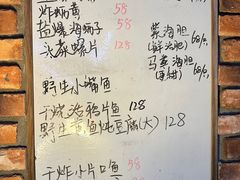 炸蛎黄 58
盐爆海肠子 58
头茶螺片 128
野生小嘴鱼
干烧洛鸦片鱼 128
野生黄鱼炖豆腐(大) 128
干炸小片口鱼
58
紫海胆
(鲜活胆) 68/个
马粪海胆
(更甜) 68/个